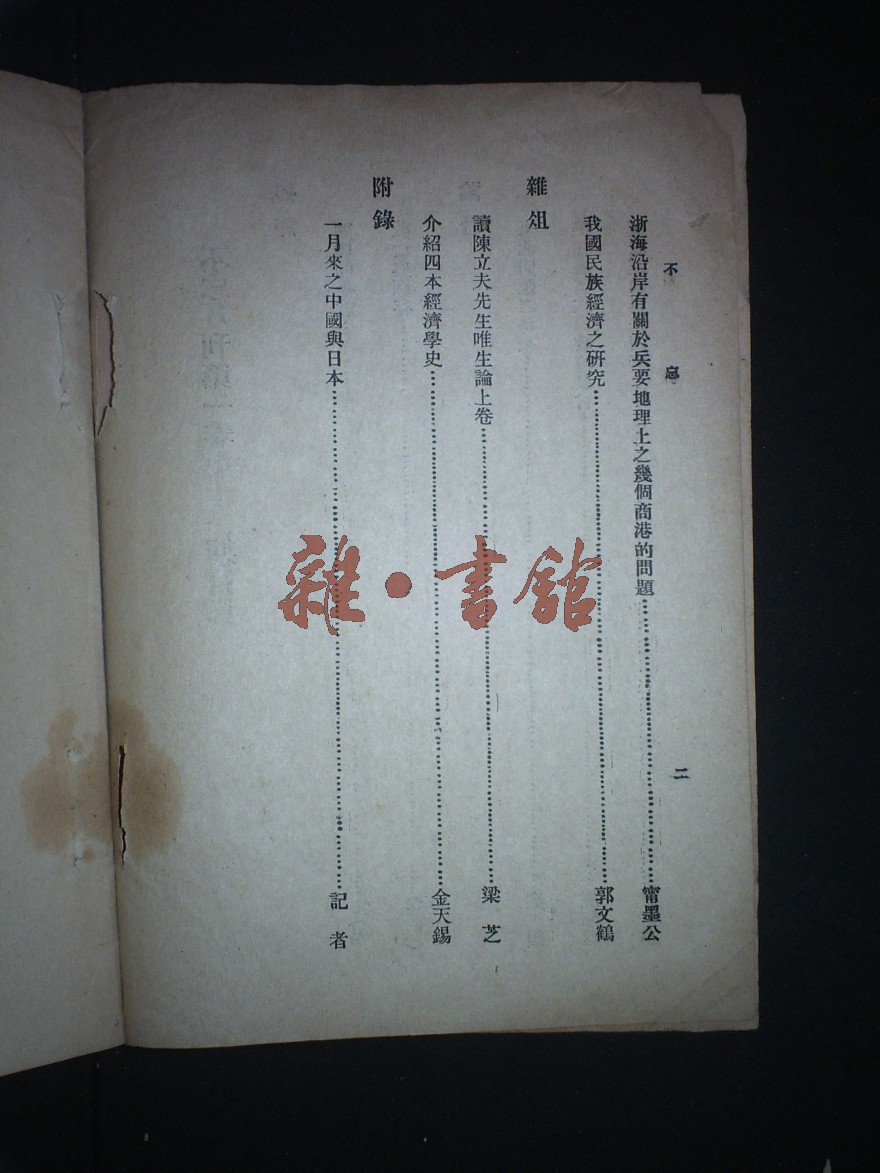 不忘
二
浙海沿岸有關於兵要地理上之幾個商港的問題……甯墨公
我國民族經濟之研究……郭文鶴
雜俎
讀陳立夫先生唯生論上卷……梁芝
介紹四本經濟學史……金天錫
附錄
一月來之中國與日本……記者
雜·書館